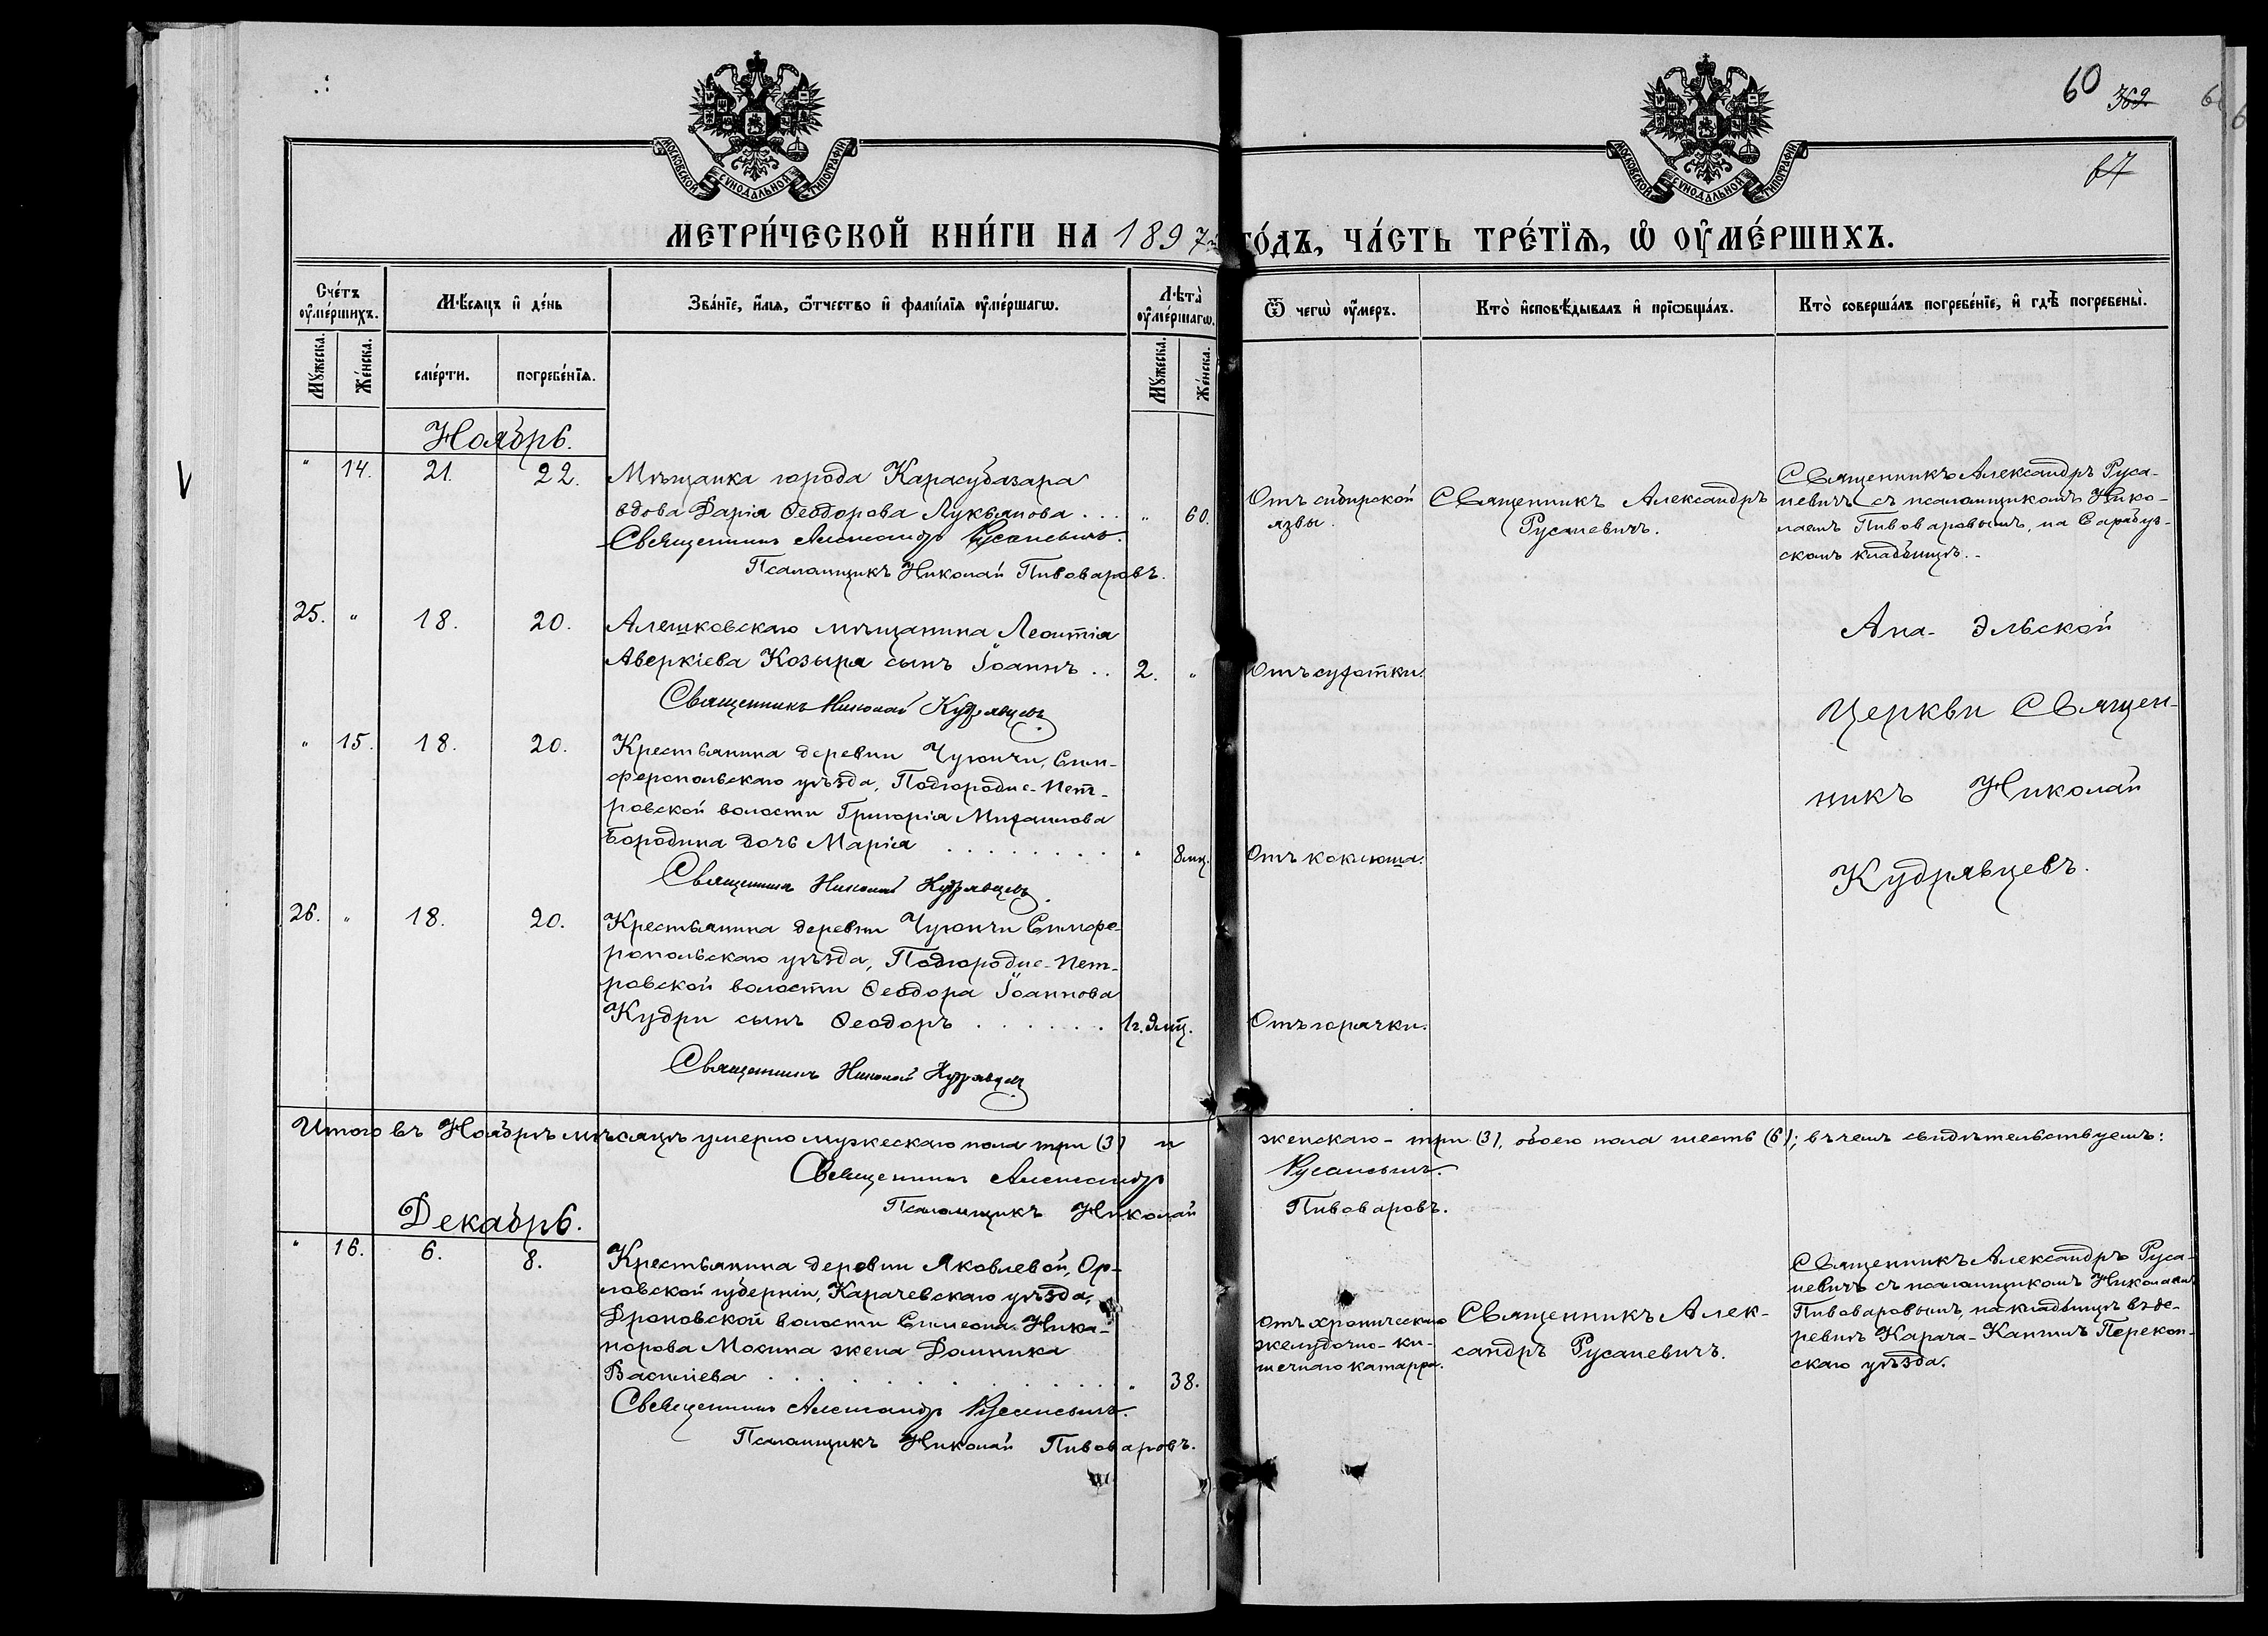 60 369
67
МОСКОВСКОЙ СУНОДАЛЬНОЙ ТИПОГРАФІИ
МОСКОВСКОЙ СУНОДАЛЬНОЙ ТИПОГРАФІИ
МЕТРИ́ЧЕСКОЙ КНИ́ГИ НА 1897й ГО́ДЪ, ЧА́СТЬ ТРЕ́ТЇѦ, Ѡ҆ ОУ҆МЕ́РШИХЪ.
Сче́тъ оу҆ме́ршихъ.
Мѣ́сяцъ и҆ де́нь
Зва́нїе, и҆́мѧ, ѻ҆́тчество и҆ фамѝлїѧ оу҆ме́ршагѡ.
Лѣта̀ оу҆ме́ршагѡ.
Ѿ чегѡ̀ оу҆́меръ.
Кто̀ и҆сповѣ́дывалъ и҆ прїѡбща́лъ.
Кто̀ соверша́лъ погребе́нїе, и҆ гдѣ̀ погребены̀.
Му́жеска.
Же́нска.
сме́рти.
погребе́нїѧ.
Му́жеска.
Же́нска.
Ноябрь.
" 14. 21. 22.
Мѣщанка города Карасубазара
вдова Дарія Ѳеодорова Лукьянова . . . " 60.
Священникъ Александръ Русаневичъ.
Псаломщикъ Николай Пивоваровъ.
Отъ сибирской
язвы.
Священникъ Александръ
Русаневичъ.
Священникъ Александръ Руса-
невичъ съ псаломщикомъ Нико-
лаемъ Пивоваровымъ, на Сарабуз-
скомъ кладбищѣ.
25. " 18. 20.
Алешковскаго мѣщанина Леонтія
Аверкіева Козыря сынъ Іоаннъ . . 2. "
Священникъ Николай Кудрявцевъ
Отъ сухотки.
" 15. 18. 20.
Крестьянина деревни Чуюнчи, Сим-
феропольскаго уѣзда, Подгородне-Пет-
ровской волости Григорія Михаилова
Бородина дочь Марія . . . . . . . " 8 мц.
Священникъ Николай Кудрявцевъ
Отъ коклюша.
26. " 18. 20.
Крестьянина деревни Чуюнчи Симфе-
ропольскаго уѣзда, Подгородне-Пет-
ровской волости Ѳеодора Іоаннова
Кудри сынъ Ѳеодоръ . . . . . . 1 г.
Священникъ Николай Кудрявцевъ
Отъ горячки.
Ана-Эльской
Церкви Священ-
никъ Николай
Кудрявцевъ.
Итого въ Ноябрѣ мѣсяцѣ умерло мужескаго пола три (3) и женскаго - три (3), обоего пола шесть (6); въ чемъ свидѣтельствуемъ:
Священникъ Александръ Русаневичъ.
Псаломщикъ Николай Пивоваровъ.
Декабрь.
" 16. 6. 8.
Крестьянина деревни Яковлевой, Ор-
ловской губерніи, Карачевскаго уѣзда,
Дроновской волости Симеона Ника-
норова Мосина жена Домника
Василіева . . . . . . . . . . " 38.
Священникъ Александръ Русаневичъ.
Псаломщикъ Николай Пивоваровъ.
Отъ хроническаго
желудочно-ки-
шечнаго катарра.
Священникъ Алек-
сандръ Русаневичъ.
Священникъ Александръ Руса-
невичъ съ псаломщикомъ Николаемъ
Пивоваровымъ, на кладбищѣ въ де-
ревнѣ Карача-Кангилъ Перекоп-
скаго уѣзда.